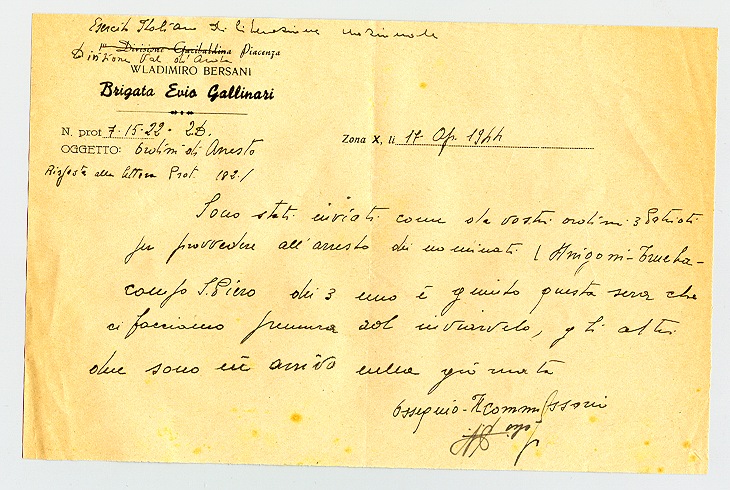 Esercito Italiano di liberazione nazionale
1ª Divisione Garibaldina Piacenza
Divisione Val d'Arda
WLADIMIRO BERSANI
Brigata Evio Gallinari
N. prot 7-15-22-2D.
Zona X, li 17 Ap. 1944
OGGETTO: Ordini di Arresto
Risposta alla lettera Prot. 182/
Sono stati inviati come da vostri ordini 3 Patrioti
per provvedere all'arresto dei nominati ( Arigoni-
campo S. Piero dei 3 uno è giunto questa sera che
ci facciamo premura ad inviarvelo, gli altri
due sono in arrivo nella giornata
Ossequio - Il commissario